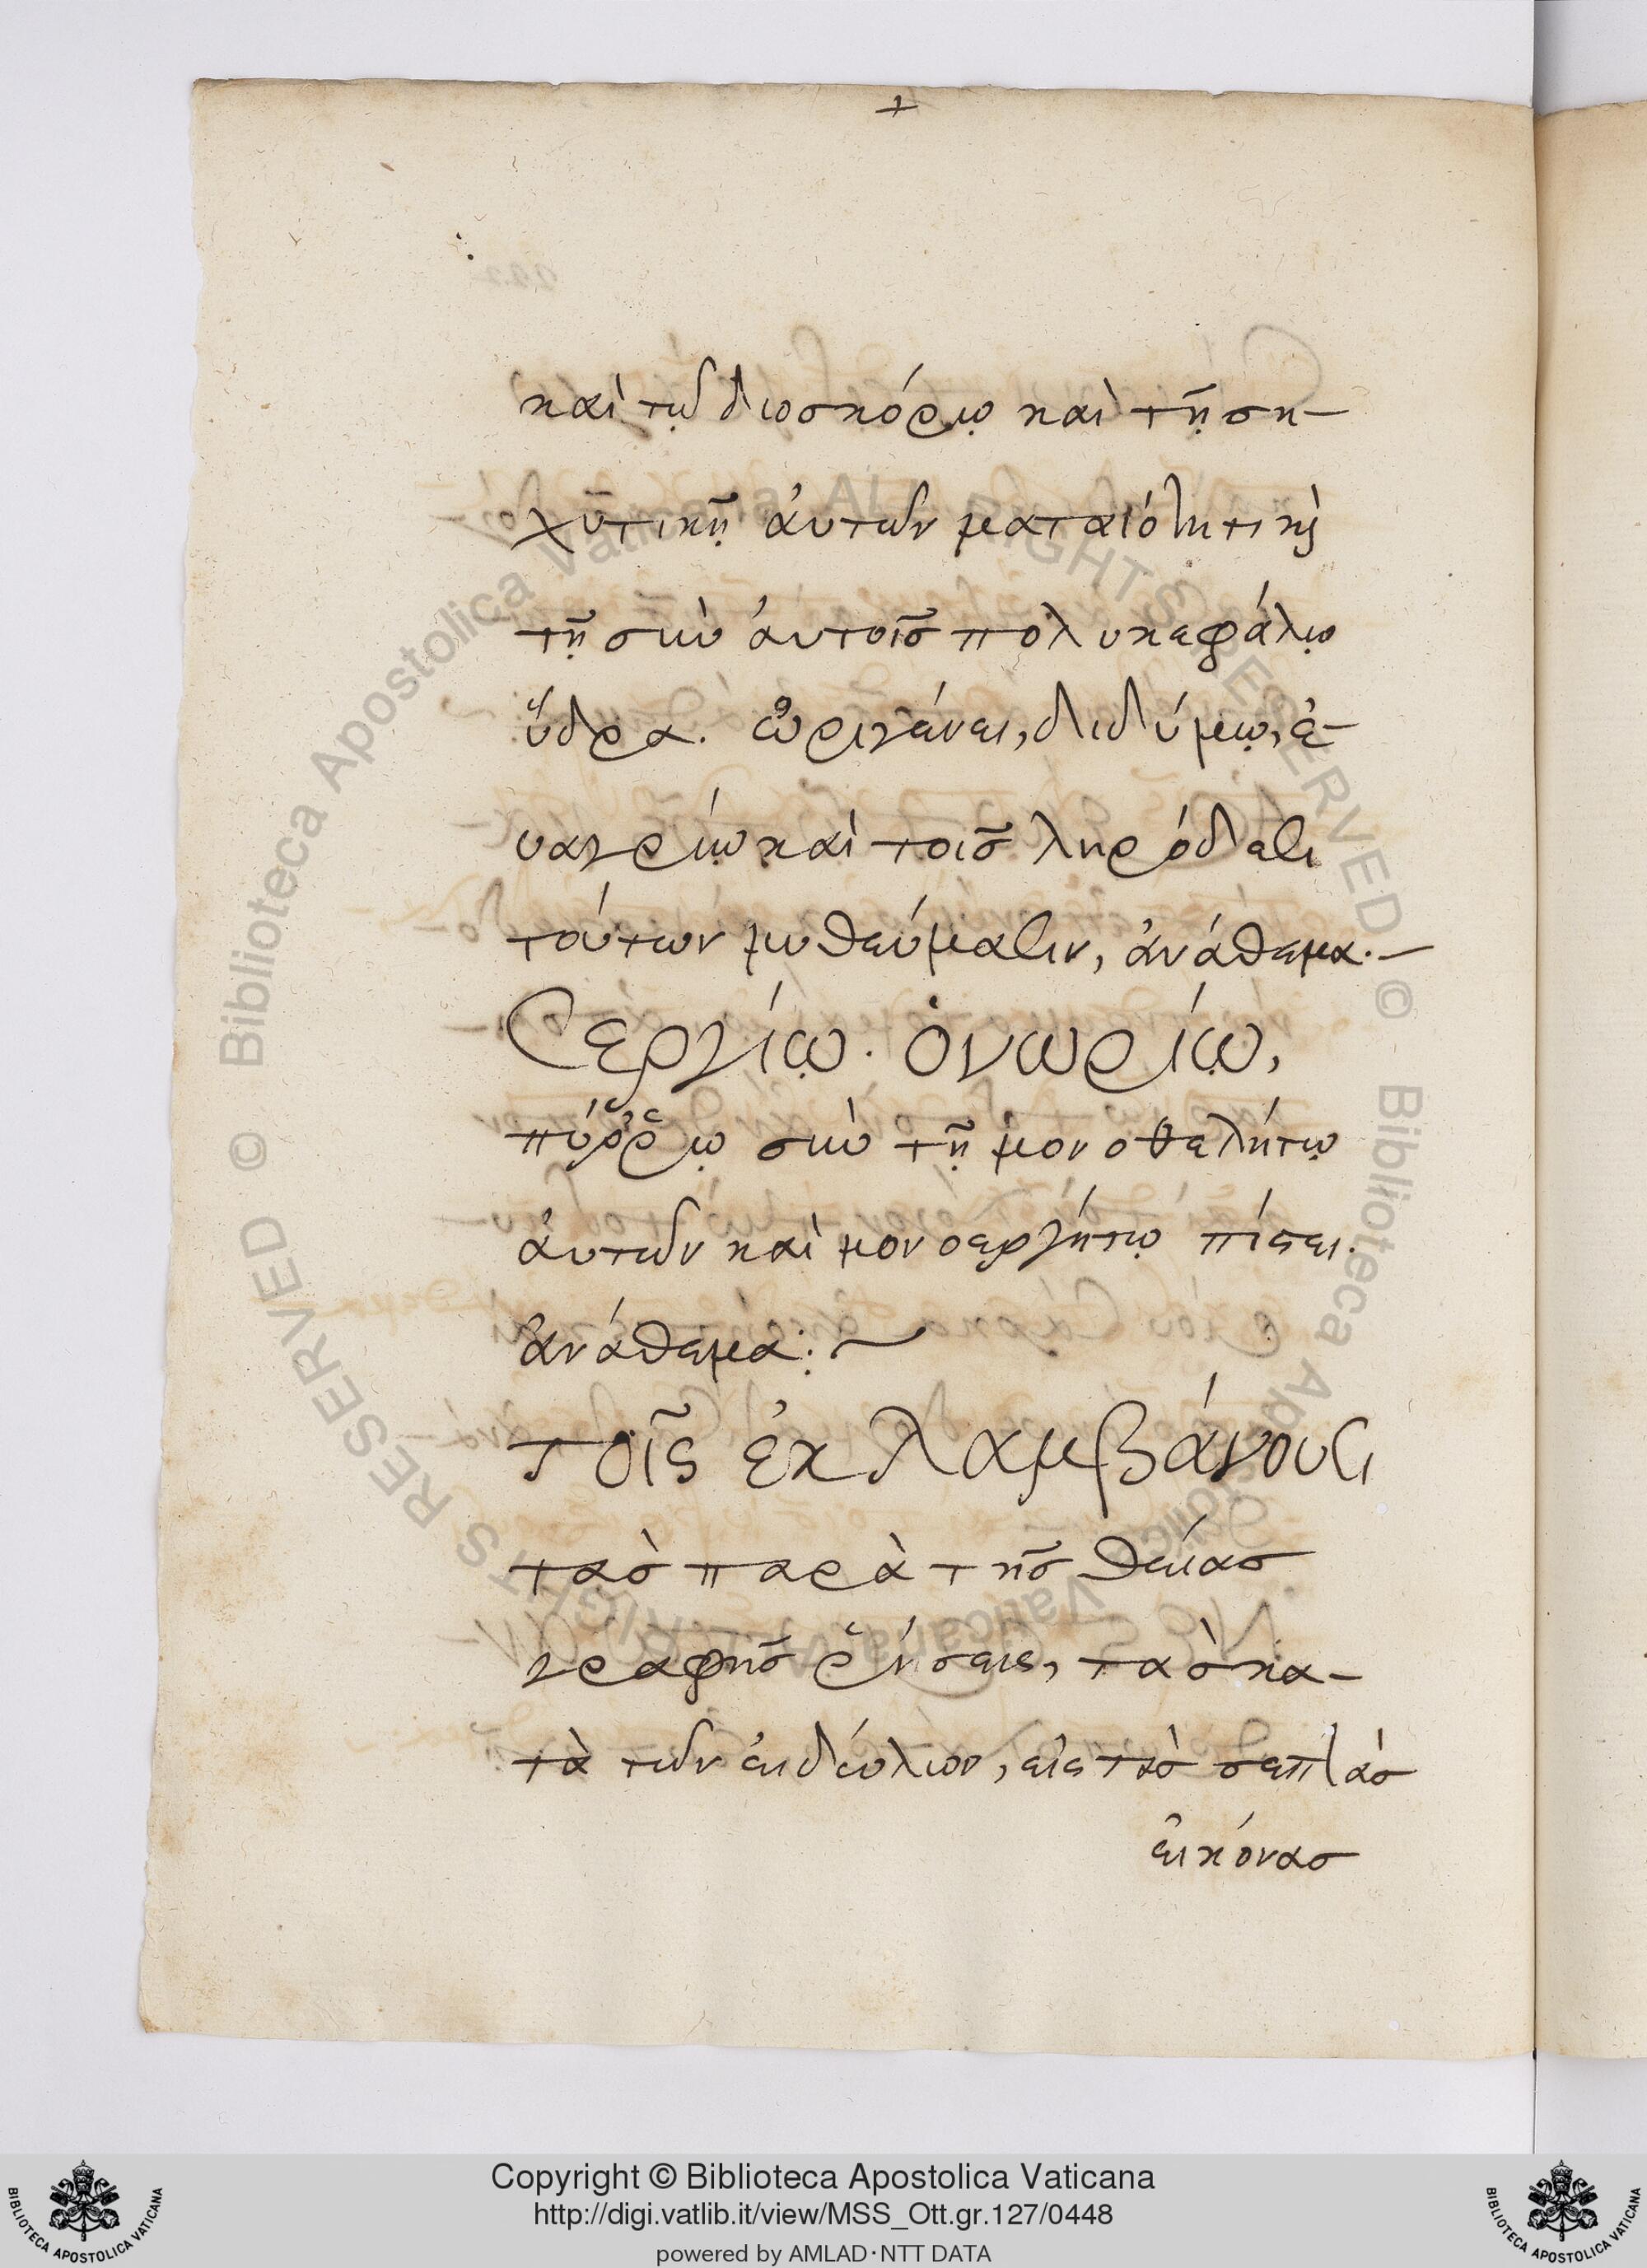 +
καὶ τῷ διοσκόρῳ καὶ τῇ συ-
χυτικῇ ἀυτῶν ματαιότητι καὶ
τῇ σὺν ἀυτοῖς πολυκεφάλῳ
ὕδρᾳ. ὠριγένει, διδύμῳ, ἐ-
υαγρίῳ καὶ τοῖς ληρώδεσι
τούτων μυθεύμασιν, ἀνάθεμα.–
Σεργίῳ. ὁνωρίῳ,
πύῤῥῳ σὺν τῇ μονοθελήτῳ
ἀυτῶν καὶ μονοεργήτῳ πίστει.
ἀνάθεμα:~
τοῖς ἐκλαμβάνουσι
τὰς παρὰ τῆς θείας
γραφῆς ῥήσεις, τὰς κα-
τὰ τῶν ἐιδώλων, εἰς τὰς σεπτὰς
εἰκόνας
Biblioteca Apostolica Vaticana ALL RIGHTS RESERVED ©
Biblioteca Apostolica Vaticana ALL RIGHTS RESERVED ©
Copyright © Biblioteca Apostolica Vaticana
http://digi.vatlib.it/view/MSS_Ott.gr.127/0448
powered by AMLAD·NTT DATA
BIBLIOTECA APOSTOLICA VATICANA
BIBLIOTECA APOSTOLICA VATICANA